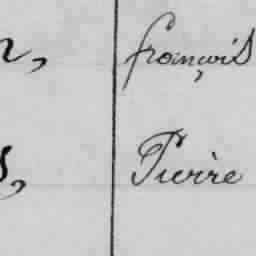 n, françois
s, Pierre